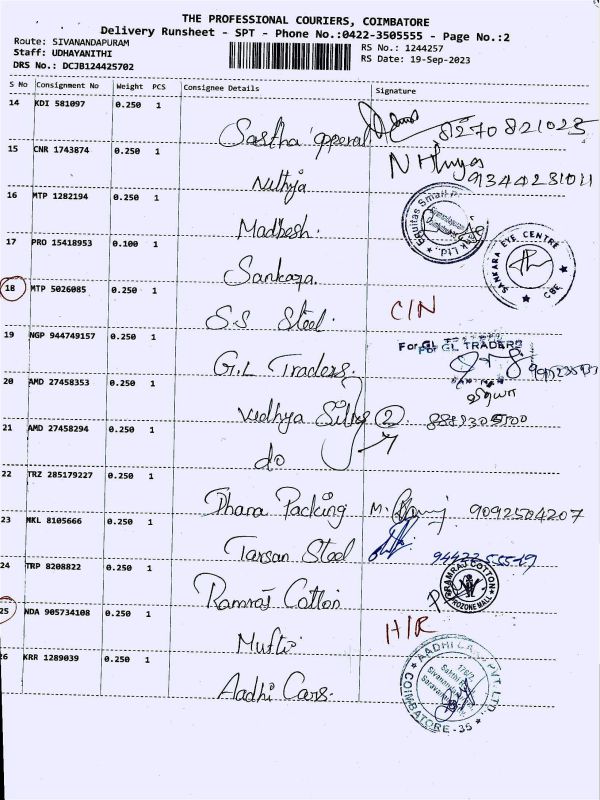 THE PROFESSIONAL COURIERS, COIMBATORE
Delivery Runsheet - SPT - Phone No.:0422-3505555 - Page No.:2
Route: SIVANANDAPURAM
Staff: UDHAYANITHI
DRS No.: DCJB124425702
RS No.: 1244257
RS Date: 19-Sep-2023
S No Consignment No Weight PCS Consignee Details Signature
14 KDI 581097 0.250 1
Sastha 8270821023
15 CNR 1743874 0.250 1
Nithya 9344231011
16 MTP 1282194 0.250 1
Madhesh. Equitas Small
17 PRO 15418953 0.100 1
Sankara. SANKARA EYE CENTRE CBE
18 MTP 5026085 0.250 1
S.S Steel. C/N
19 NGP 944749157 0.250 1
G.L Traders. For GL TRADERS
20 AMD 27458353 0.250 1
Vidhya Silks 2
21 AMD 27458294 0.250 1
do
22 TRZ 285179227 0.250 1
Dhana Packing M. 9092504207
23 NKL 8105666 0.250 1
Tarsan Steel
24 TRP 8208822 0.250 1
Ramraj Cotton RAMRAJ COTTON
25 NDA 905734108 0.250 1
Mufti H/R
26 KRR 1289039 0.250 1
Aadhi Cars. AADHI CARS PVT. LTD. COIMBATORE-35